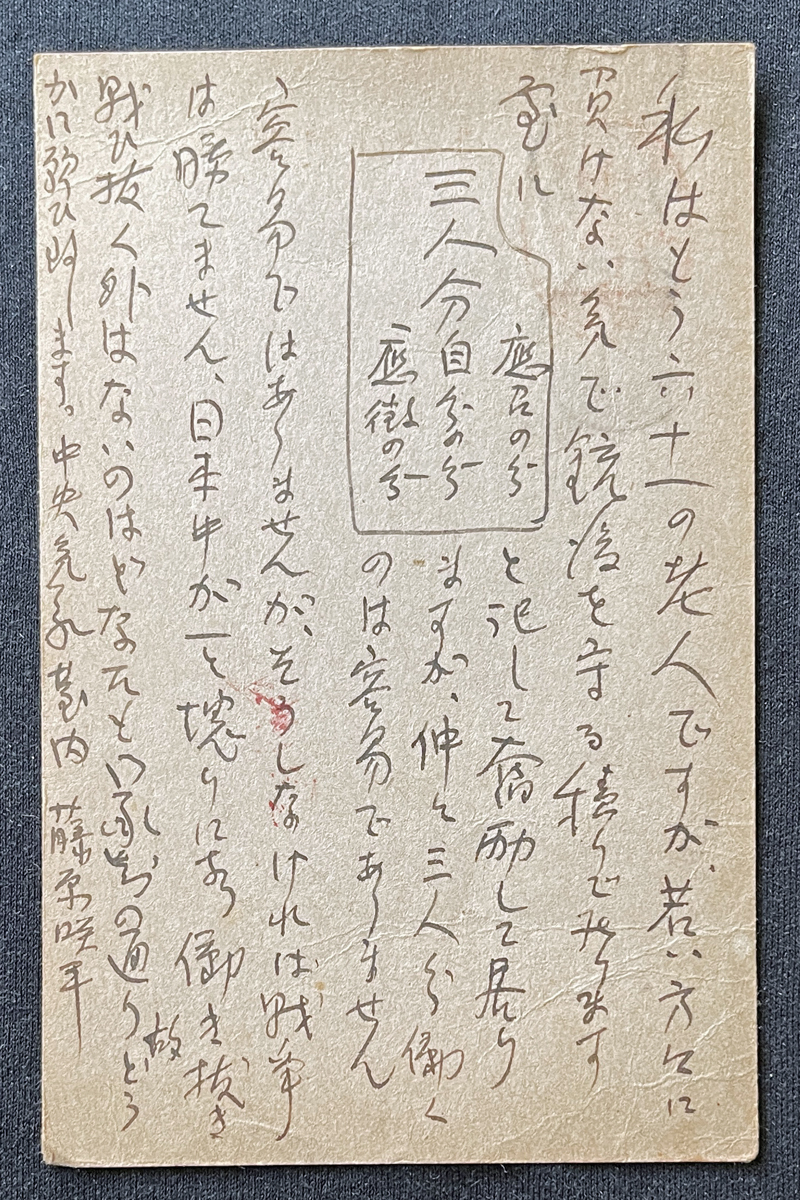 私はもう六十一の老人ですが、若い方々に
負けない気で銃後を守る積りで居ります
室に
三人分
應召の分
自分の分
應徴の分
と記して奮励して居り
ますが、仲々三人分働く
のは容易でありません
容易ではありませんが、そうしなければ戦争
は勝てません、日本中が一と塊りになり働き抜き
戦ひ抜く外はないのは
承知の通り故どう
かお願ひ致します。中央気象台内 藤原咲平